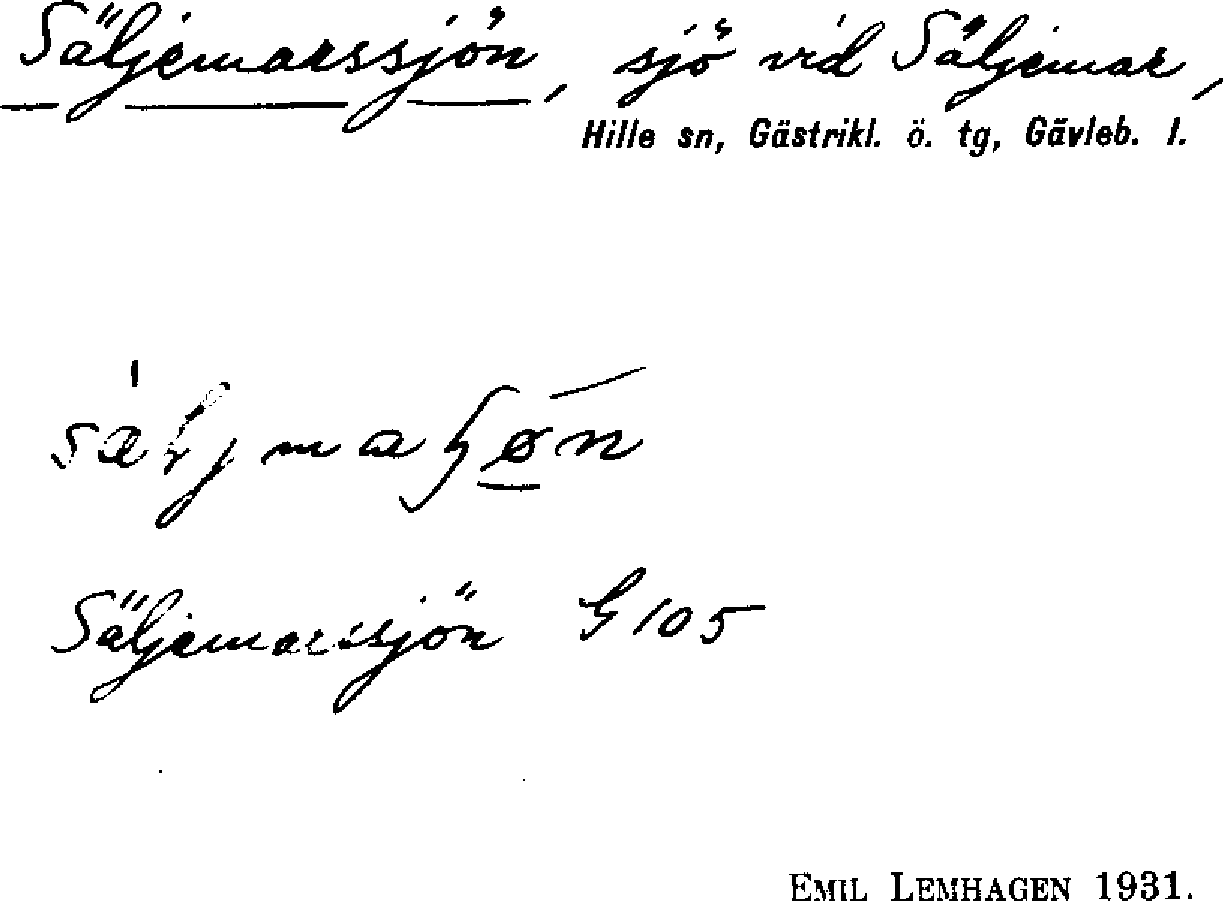 Säljemarssjön, sjö vid Säljemar,
Hille sn, Gästrikl. ö. tg, Gävleb. l.
Säljemarssjön G 105
EMIL LEMHAGEN 1931.